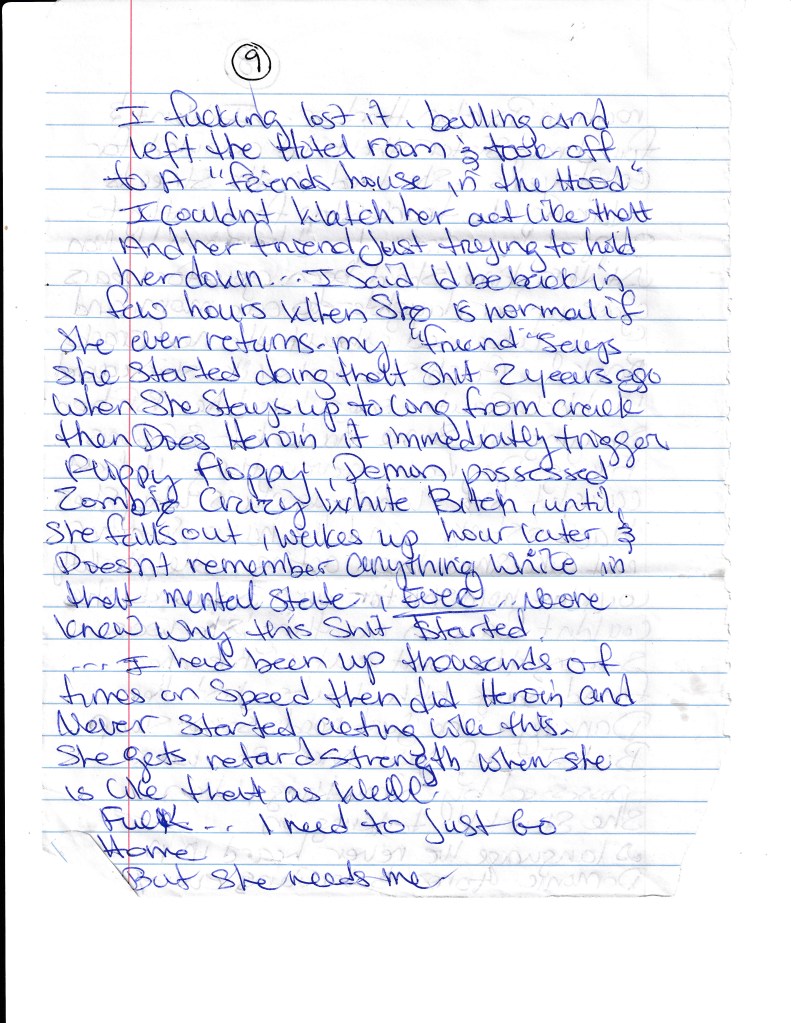 9
I fucking lost it, balling and
left the Hotel room & took off
to A "friends house in the Hood"
I couldnt Watch her act like thatt
And her friend Just trying to hold
her down... I Said Id be back in
few hours When She is normal if
She ever returns. my "friend" Says
She Started doing thatt Shit 2 years ago
When She Stays up to Long from crack
then Does Heroin it immediatly trigger
Floppy Floppy, Demon possessed
Zombie Crazy White Bitch, until,
She falls out, wakes up hour Later &
Doesnt remember anything While in
thatt mental State, Ever... Noone
knew Why this Shit Started.
.... I had been up thousands of
times on Speed then did Heroin and
Never Started acting Like this.
She gets retard Strength when she
is Like thatt as Well.
Fuck... I need to Just Go
Home
But She needs me